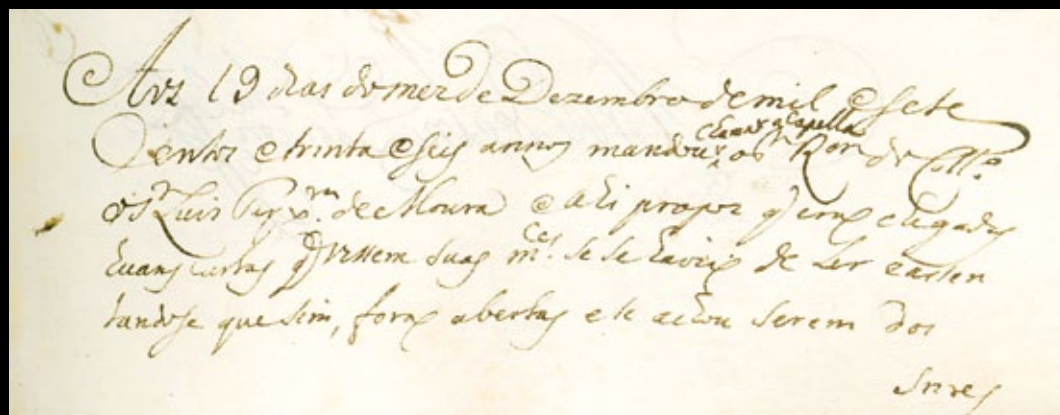 Aos 19 dias do mez de Dezembro de mil e sete
Sentos e trinta e seis annos mandou chamar a Capella o Sr Ror do Collo
o Sr Luis Per.ra de Moura e ali propoz q̃ erão chegadas
huas cartas q̃ vissem suas mces se se havião de ler e asen
tandose que sim, forão abertas e se achou serem dos
Snres